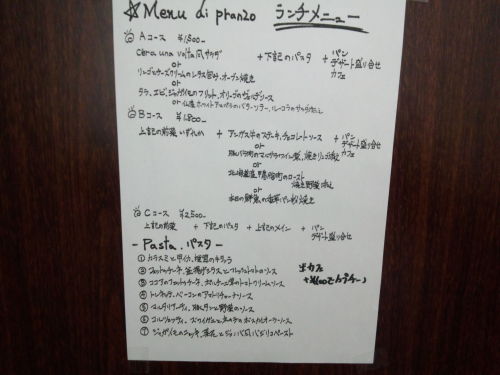 ☆Menu di pranzo ランチメニュー
Aコース ¥1,500-
Cera una volta風サラダ
or
+ 下記のパスタ + パン
デザート盛り合せ
カフェ
リンゴとチーズクリームのレタス包み、オーブン焼き
or
タラ、エビ、ジャガイモのフリット、オリーブの
or 仏産ホワイトアスパラのバターソテー、ルーコラの
Bコース ¥1,800-
上記の前菜いずれか + アンガス牛のステーキ、チョコレートソース + パン
デザート盛り合せ
カフェ
or
豚バラ肉のマルサラワイン煮、焼きリンゴ添え
or
北海道産鴨胸肉のロースト
焼き野菜添え
or
本日の鮮魚の香草パン粉焼き
Cコース ¥2,500-
上記の前菜 + 下記のパスタ + 上記のメイン + パン
デザート盛り合せ
- Pasta. パスタ -
① カラスミと
② フェットチーネ、釜揚げシラスとフレッシュトマトのソース
③ ココア のトマトクリームソース
④ トレネッテ、ベーコンのアマトリチャーナソース
⑤ マルタリアーティ、豚タンと野菜のソース
⑥ ズワイガニと
⑦ ジャガイモのニョッキ、菜花と バジリコペースト
※カフェ
+¥100でカプチーノ